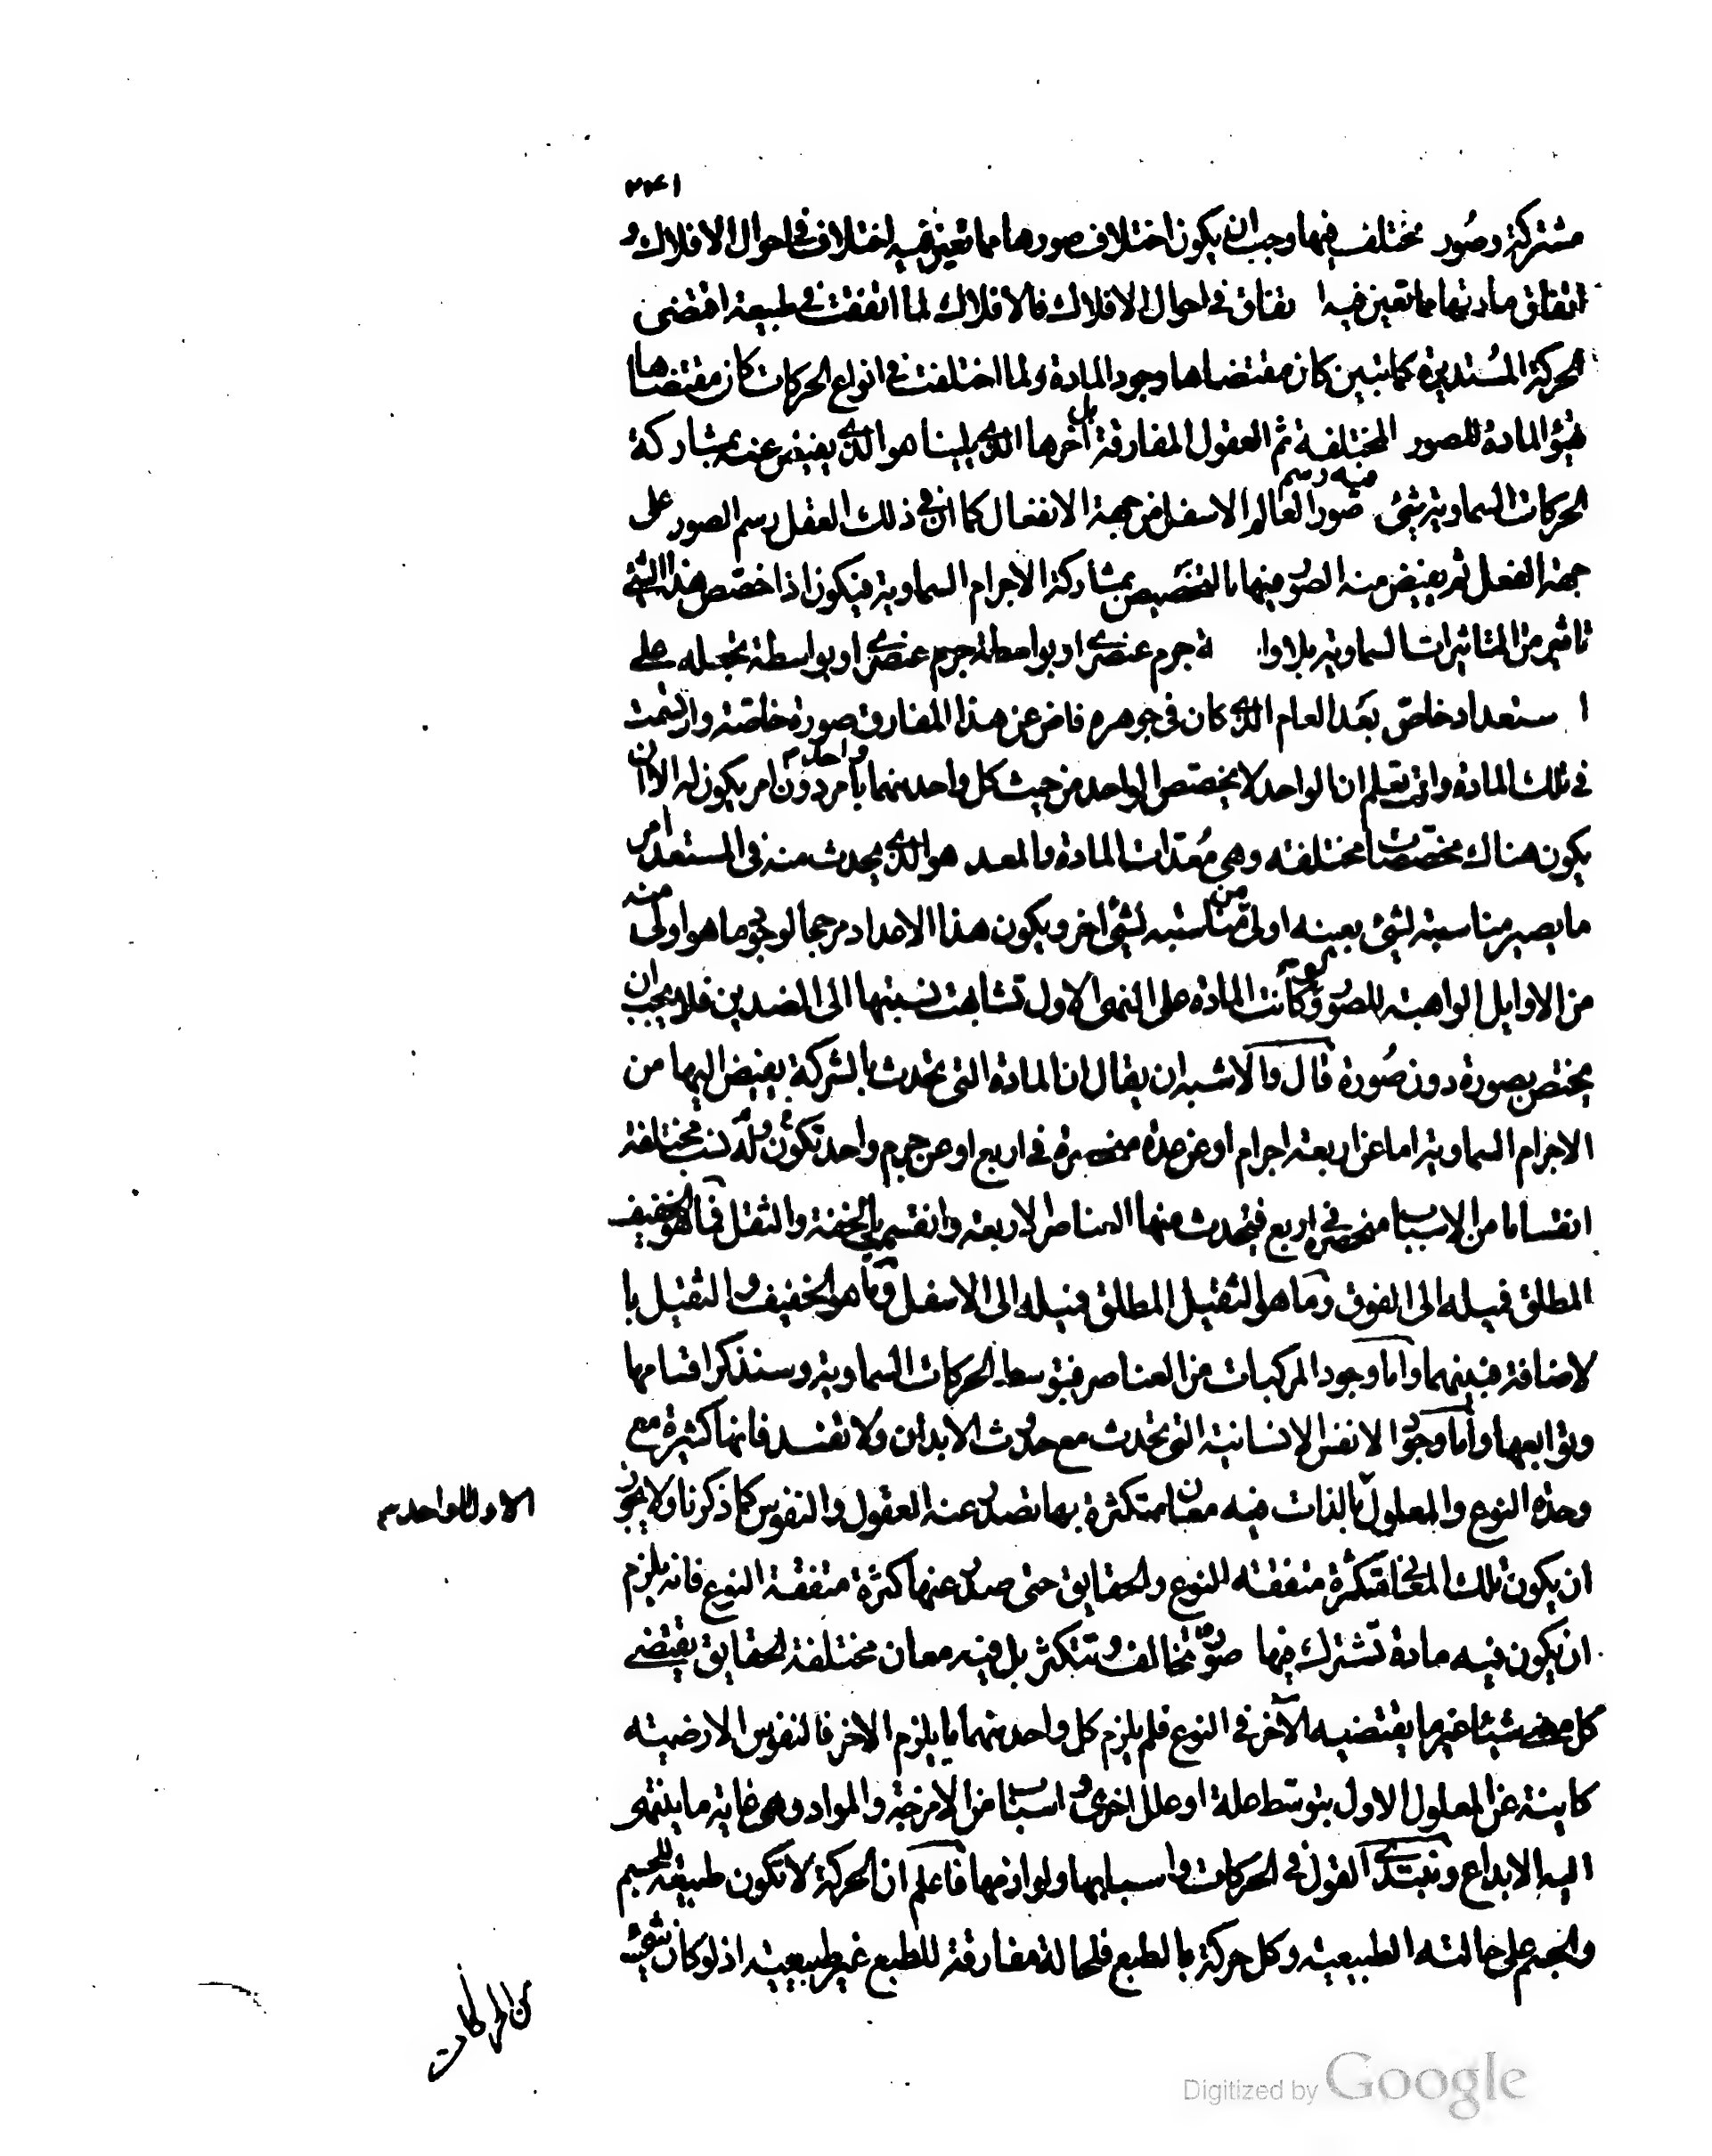 ٢٢٤١
مشتركة وصور مختلف فيها وجب ان يكون اختلاف صورها مما تعين فيه اختلاف في احوال الافلاك و
اتفاق مادتها مما تعين فيه ا تفاق في احوال الافلاك فالافلاك لما اتفقت في طبيعة اقتضى
الحركة المستديرة كما تبين كان مقتضاها وجود المادة ولما اختلفت في انواع الحركات كان مقتضاها
تهيؤ المادة للصور المختلفة ثم العقول المفارقة بل اخرها الذي يلينا هو الذي يفيض عنه بمشاركة
الحركات السماوية شئ فيه رسم صور العالم الاسفل من جهة الانفعال كما ان في ذلك العقل رسم الصور على
جهة الفعل ثم يفيض منه الصور فيها بالتخصيص بمشاركة الاجرام السماوية فيكون اذا خصص هذا الشئ
تاثير من التاثيرات السماوية بلا وا ة جرم عنصري او بواسطة جرم عنصري او بواسطة تجعله على
ا ستعداد خاص بعد العام الذي كان في جوهره فاض عن هذا المفارق صورة خاصة وارتسمت
في تلك المادة وانت تعلم ان الواحد لا يخصص الواحد من حيث كل واحد منهما واحد م بامر دون امر يكون له الا ان
يكون هناك مخصصات مختلفة وهي معدات المادة والمعد هو الذي يحدث منه في المستعد امر
ما يصير مناسبته لشئ بعينه اولى من مناسبته لشئ اخر ويكون هذا الاعداد مرجحا لوجود ما هو اولى منه
من الاوايل الواهبة للصور ولو كانت المادة على التهيؤ الاول تشابهت نسبتها الى الضدين فلا يجب ان
يختص بصورة دون صورة قال والاشبه ان يقال ان المادة التي تحدث بالشركة يفيض اليها من
الاجرام السماوية اما عن اربعة اجرام او عن عدة منحصرة في اربع او عن جرم واحد تكون وله نسب مختلفة
انقساما من الاسباب منحصرة في اربع فيحدث منها العناصر الاربعة وانقسم بالخفة والثقل فما هو الخفيف
المطلق فميله الى الفوق وما هو الثقيل المطلق فميله الى الاسفل وما هو الخفيف والثقيل با
لاضافة فبينهما واما وجود المركبات من العناصر فبتوسط الحركات السماوية وسنذكر اقسامها
وتوابعها واما وجود الانفس الانسانية التي تحدث مع حدوث الابدان ولا تفسد فانها كثيرة مع
وحدة النوع والمعلول بالذات فيه معان متكثرة بها تصدر عنه العقول والنفوس كما ذكرنا ولا يجوز
الاول الواحد م
ان يكون تلك المعاني متكثرة متفقة النوع والحقايق حتى صدر عنها كثرة متفقة النوع فانه يلزم
ان يكون فيه مادة تشترك فيها صور ما تتخالف وتتكثر بل فيه معان مختلفة الحقايق يقتضي
كل معنى شيئا غير ما يقتضيه الآخر في النوع فلم يلزم كل واحد منهما ما يلزم الاخر فالنفوس الارضية
كاينة عن المعلول الاول بتوسط علة او علل اخرى و اسباب من الامزجة والمواد وهي غاية ما ينتهي
اليه الابداع ونبتدئ القول في الحركات واسبابها ولوازمها فاعلم ان الحركة لا تكون طبيعة للجسم
والجسم على حالته الطبيعية وكل حركة بالطبع فلحالة مفارقة للطبع غير طبيعية اذ لو كان شئ
من الحركات
Digitized by Google